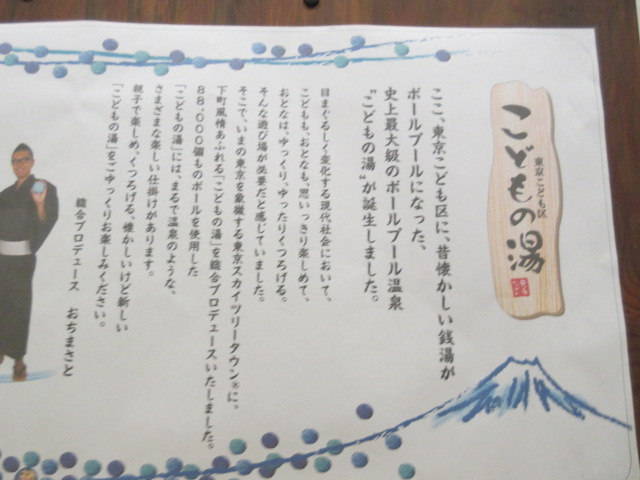 東京こども区
こどもの湯
ここ、東京こども区に、昔懐かしい銭湯が
ボールプールになった、
史上最大級のボールプール温泉
“こどもの湯”が誕生しました。
目まぐるしく変化する現代社会において、
こどもも、おとなも、思いっきり楽しめて、
おとなは、ゆっくり、ゆったりくつろげる。
そんな遊び場が必要だと感じていました。
そこで、いまの東京を象徴する東京スカイツリータウン®に、
下町風情あふれる「こどもの湯」を総合プロデュースいたしました。
88,000個ものボールを使用した
「こどもの湯」には、まるで温泉のような、
さまざまな楽しい仕掛けがあります。
親子で楽しめ、くつろげる、懐かしいけど新しい
「こどもの湯」をごゆっくりお楽しみください。
総合プロデュース おちまさと